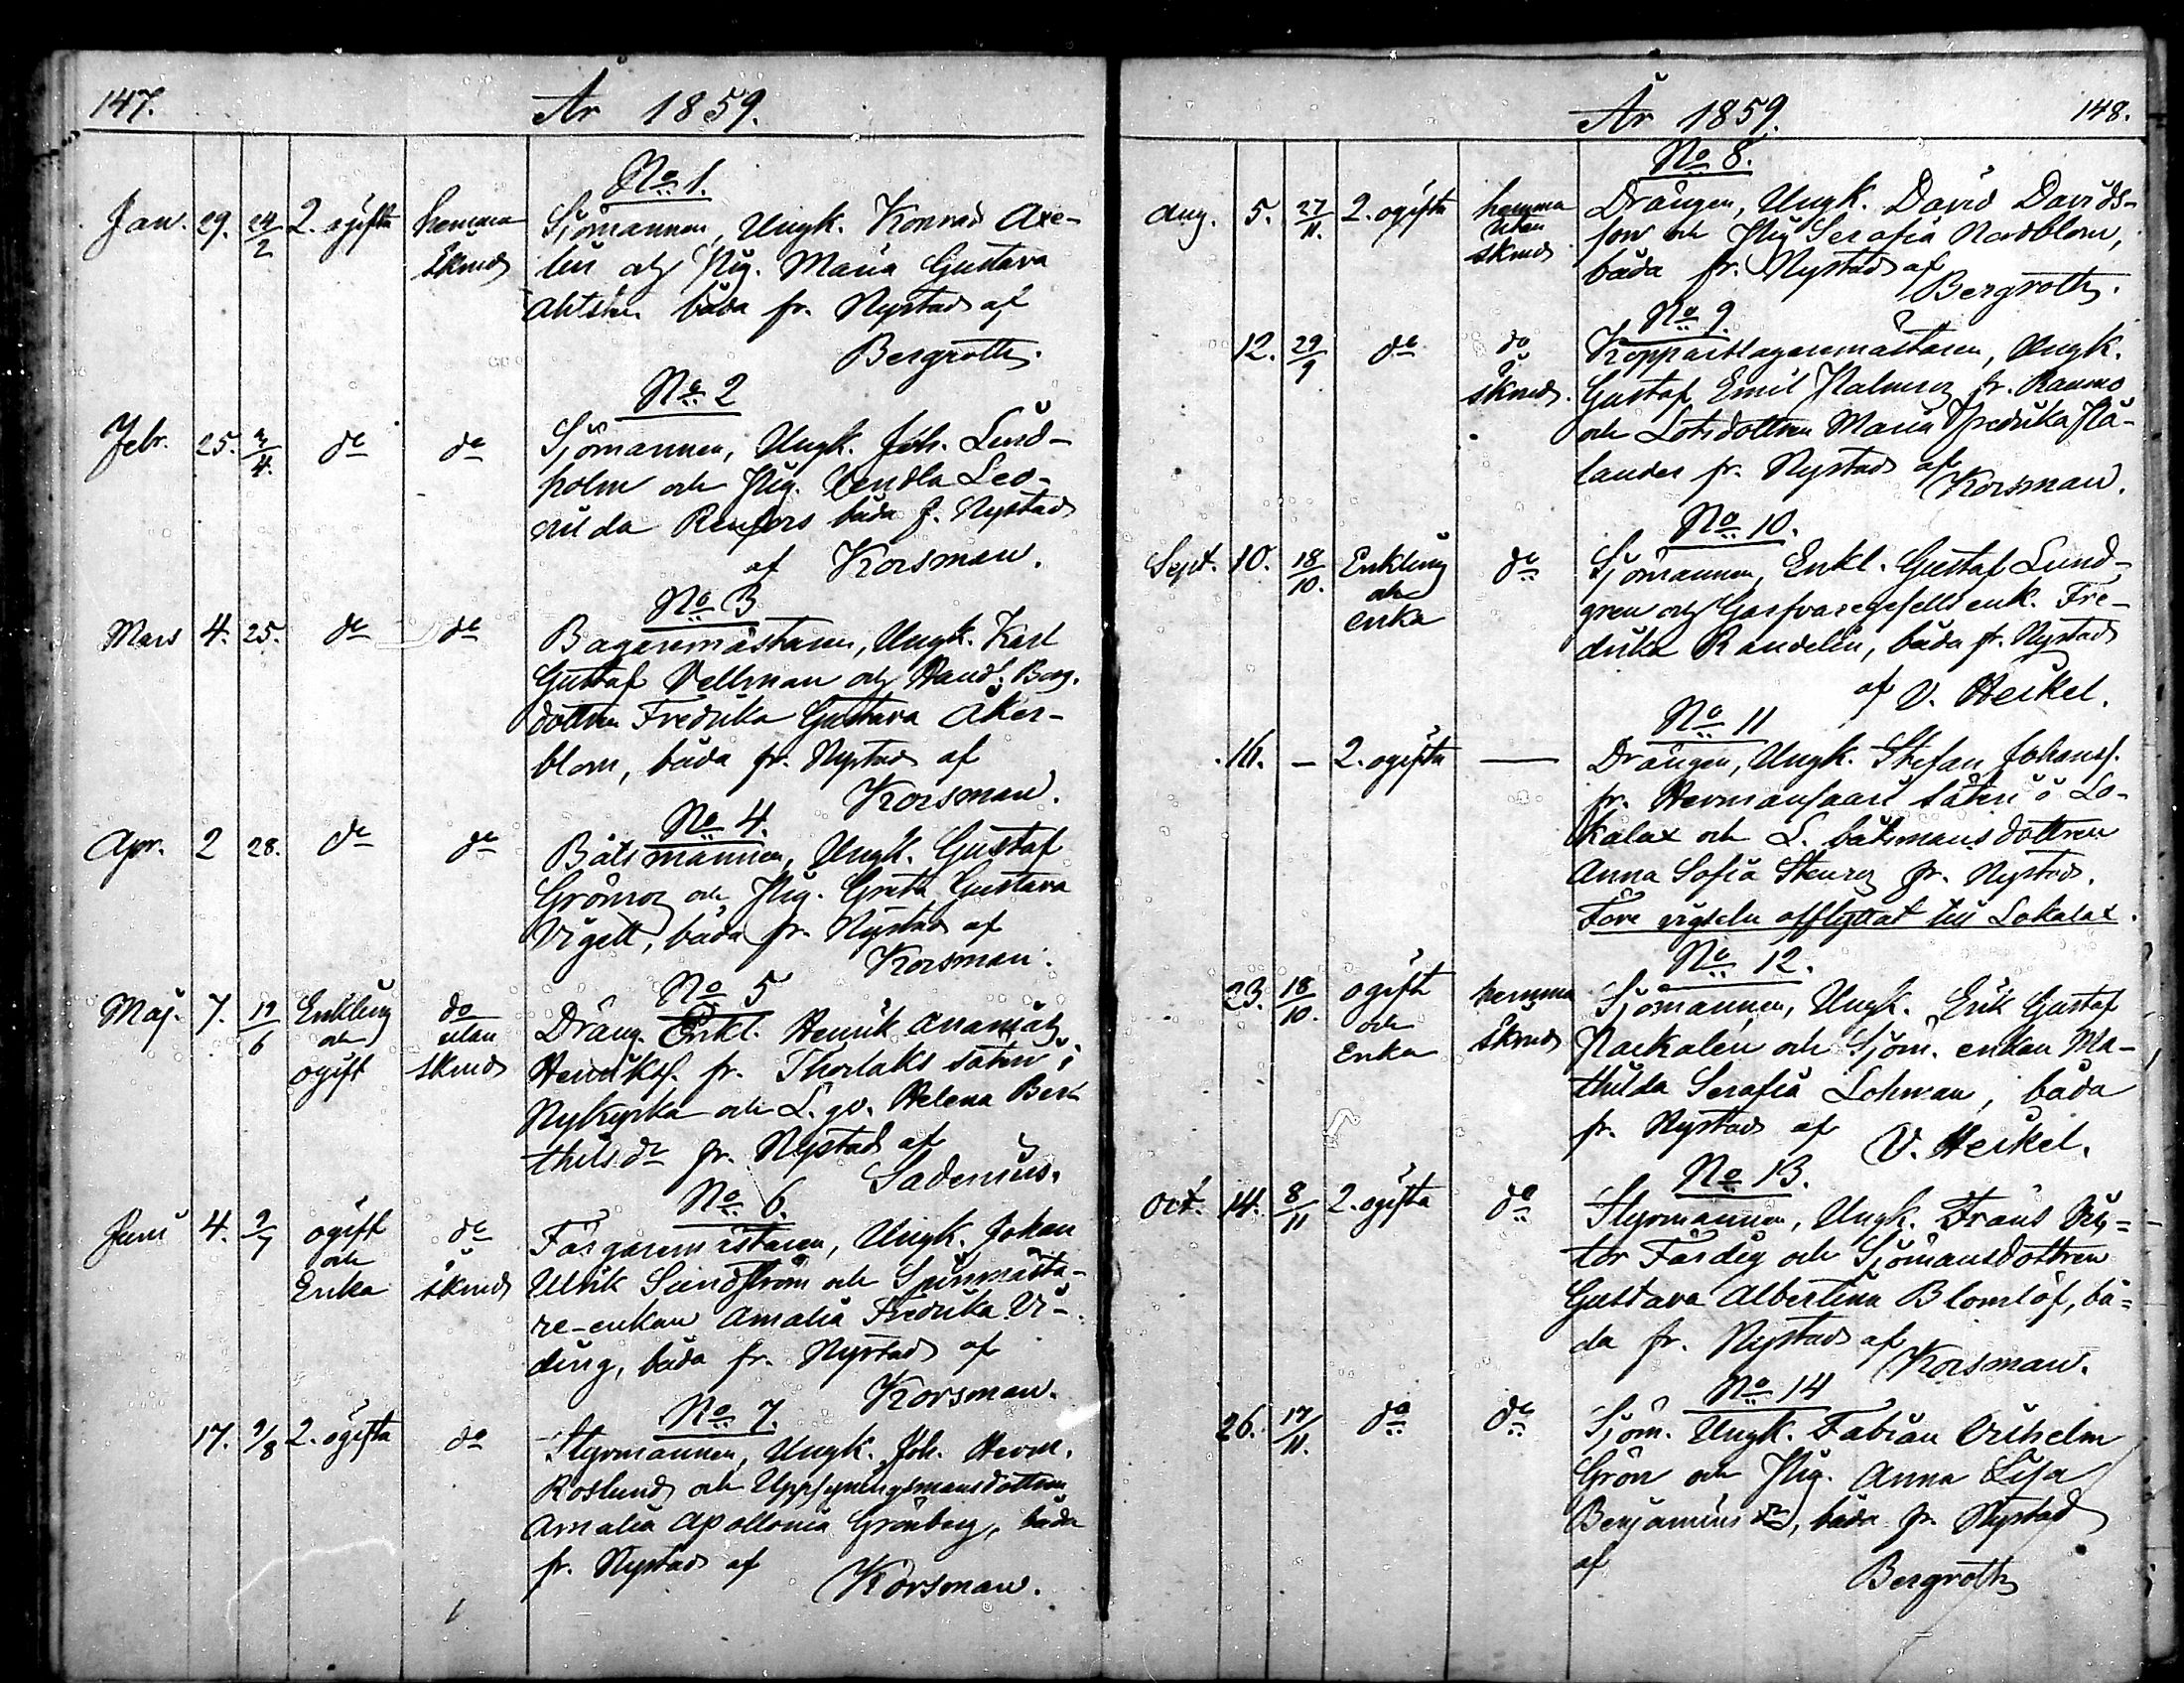 147.
År 1859.
No 1.
Jan. 29. 24/2 2. ogifta hemma Sjömannen, Ungk. Konrad Axe-
skrud lin och Pig. Maria Gustava
båda fr. Nystad af
Bergroth.
No 2
Febr. 25. 3/4. do do Sjömannen, Ungk. Joh. Lind-
holm och Pig. Vendla Leo-
nilda Renfors båda f. Nystad
af Korsman.
No 3
Mars 4. 25. do do Bagaremästaren, Ungk. Karl
Gustaf Vellman och Handl. Borg.
dottren Fredrika Gustava Åker-
blom, båda fr. Nystad af
Korsman.
No 4.
Apr. 2 28. do do Båtsmannen, Ungk. Gustaf
Grönroz och Pig. Greta Gustava
Vigell, båda fr. Nystad af
Korsman.
No 5
Maj. 7. 19/6 Enkling do Dräng. Enkl. Henrik Ananias
och utan Henriksf. fr. Thorlaks säteri i
ogift skrud Nykyrka och L. qv. Helena Ber-
thilsdr fr. Nystad af
Sadenius.
No 6.
Juni 4. 9/7 ogift do Färgaremästaren, Ungk. Johan
och Enka skrud Ulrik Sundström och Spinmästa-
re-enkan Amalia Fredrika Vi-
ding, båda fr. Nystad af
Korsman.
No 7.
17. 9/8 2. ogifta do Styrmannen, Ungk. Joh. Herm.
Roslund och Uppsyningsmansdottren
Amalia Apollonia Grönberg, båda
fr. Nystad af
Korsman.
År 1859.
148.
No 8.
Aug. 5. 27/11. 2. ogifta hemma Drängen, Ungk. David Davids-
utan son och Pig Serafia Nordblom,
skrud båda fr. Nystad af
Bergroth.
No 9.
12. 29/9 do do Kopparslagaremästaren, Ungk.
skrud. Gustaf Emil Palmroz fr. Raumo
och Lotsdottren Maria Fredrika Flä-
lander fr. Nystad af
Korsman.
No 10.
Sept. 10. 18/10. Enkling do Sjömannen, Enkl. Gustaf Lund-
och gren och Garfvaregesells enk. Fre-
enka drika Randelin, båda fr. Nystad
af V. Heikel.
No 11
16. — 2. ogifta — Drängen, Ungk. Stefan Johansf.
fr. Hermansaari säteri i Lo-
kalax och L. båtsmansdottren
Anna Sofia Stenroz fr. Nystad.
Före vigseln afflyttat till Lokalax.
No 12.
23. 18/10. ogift hemma Sjömannen, Ungk. Erik Gustaf
och skrud Packalén och Sjöm. enkan Ma-
Enka thilda Serafia Lohman, båda
fr. Nystad af
V. Heikel.
No 13.
Oct. 14. 8/11 2. ogifta do Styrmannen, Ungk. Frans Vik-
tor Färdig och Sjömansdottren
Gustava Albertina Blomlöf, bå-
da fr. Nystad af
Korsman.
No 14
26. 17/11. do do Sjöm. Ungk. Fabian Vilhelm
Grön och Pig. Anna Lisa
Benjaminsdr, båda fr. Nystad
af
Bergroth